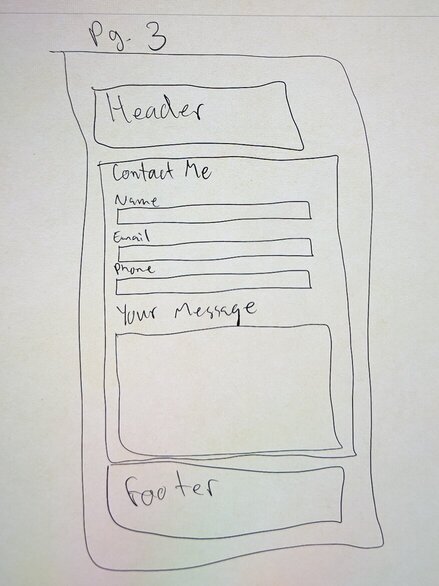 Pg. 3
Header
Contact Me
Name
Email
Phone
Your Message
Footer